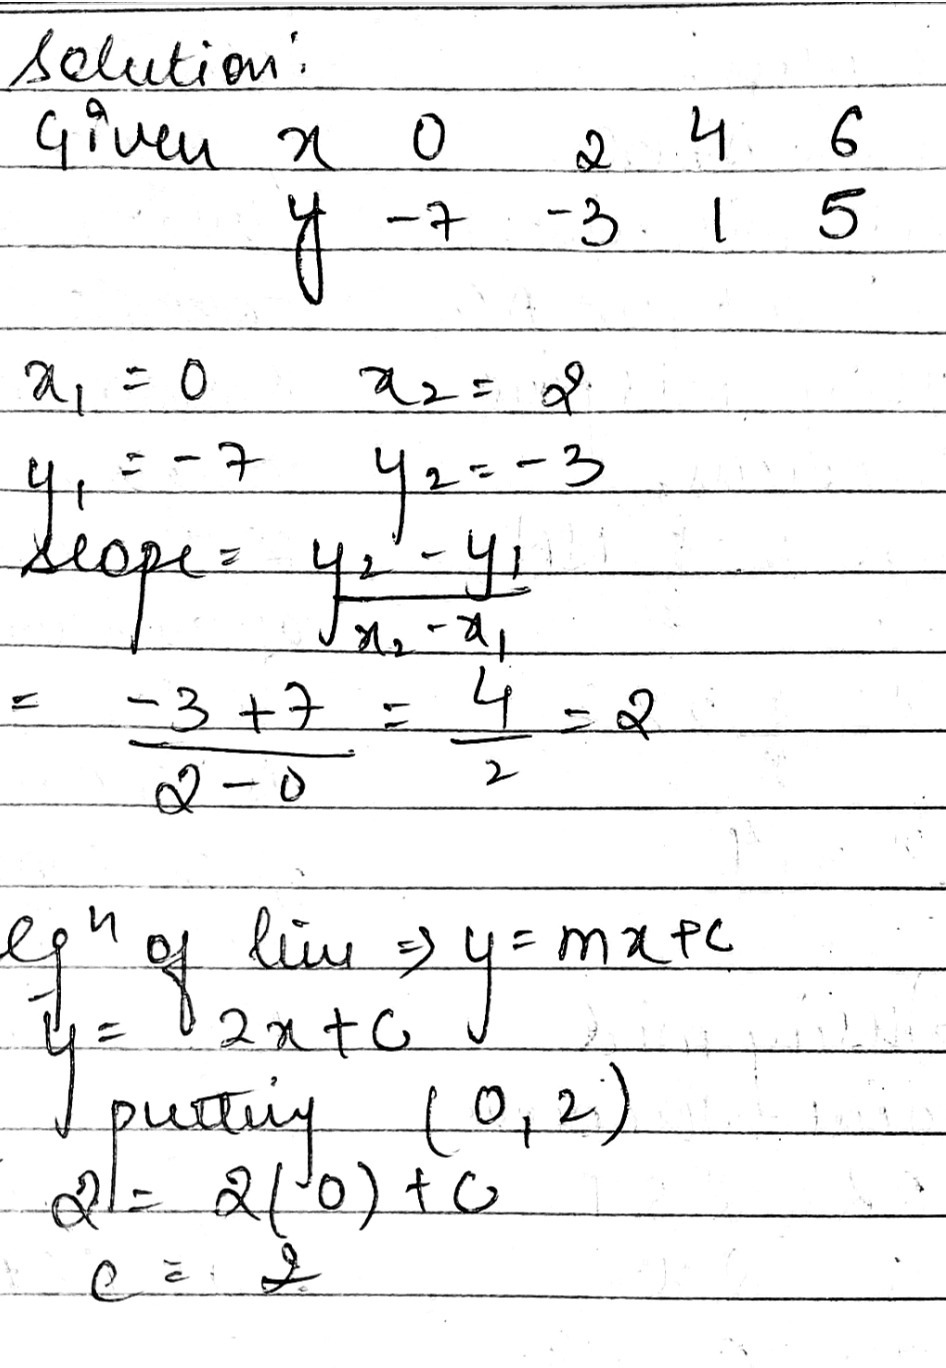 Solution:
Given x 0 2 4 6
y -7 -3 1 5
x₁ = 0 x₂ = 2
y₁ = -7 y₂ = -3
slope = y₂ - y₁
x₂ - x₁
= -3 + 7 = 4 = 2
2 - 0 2
eqⁿ of line ⇒ y = mx + c
y = 2x + c
putting (0, 2)
2 = 2(0) + c
c = 2